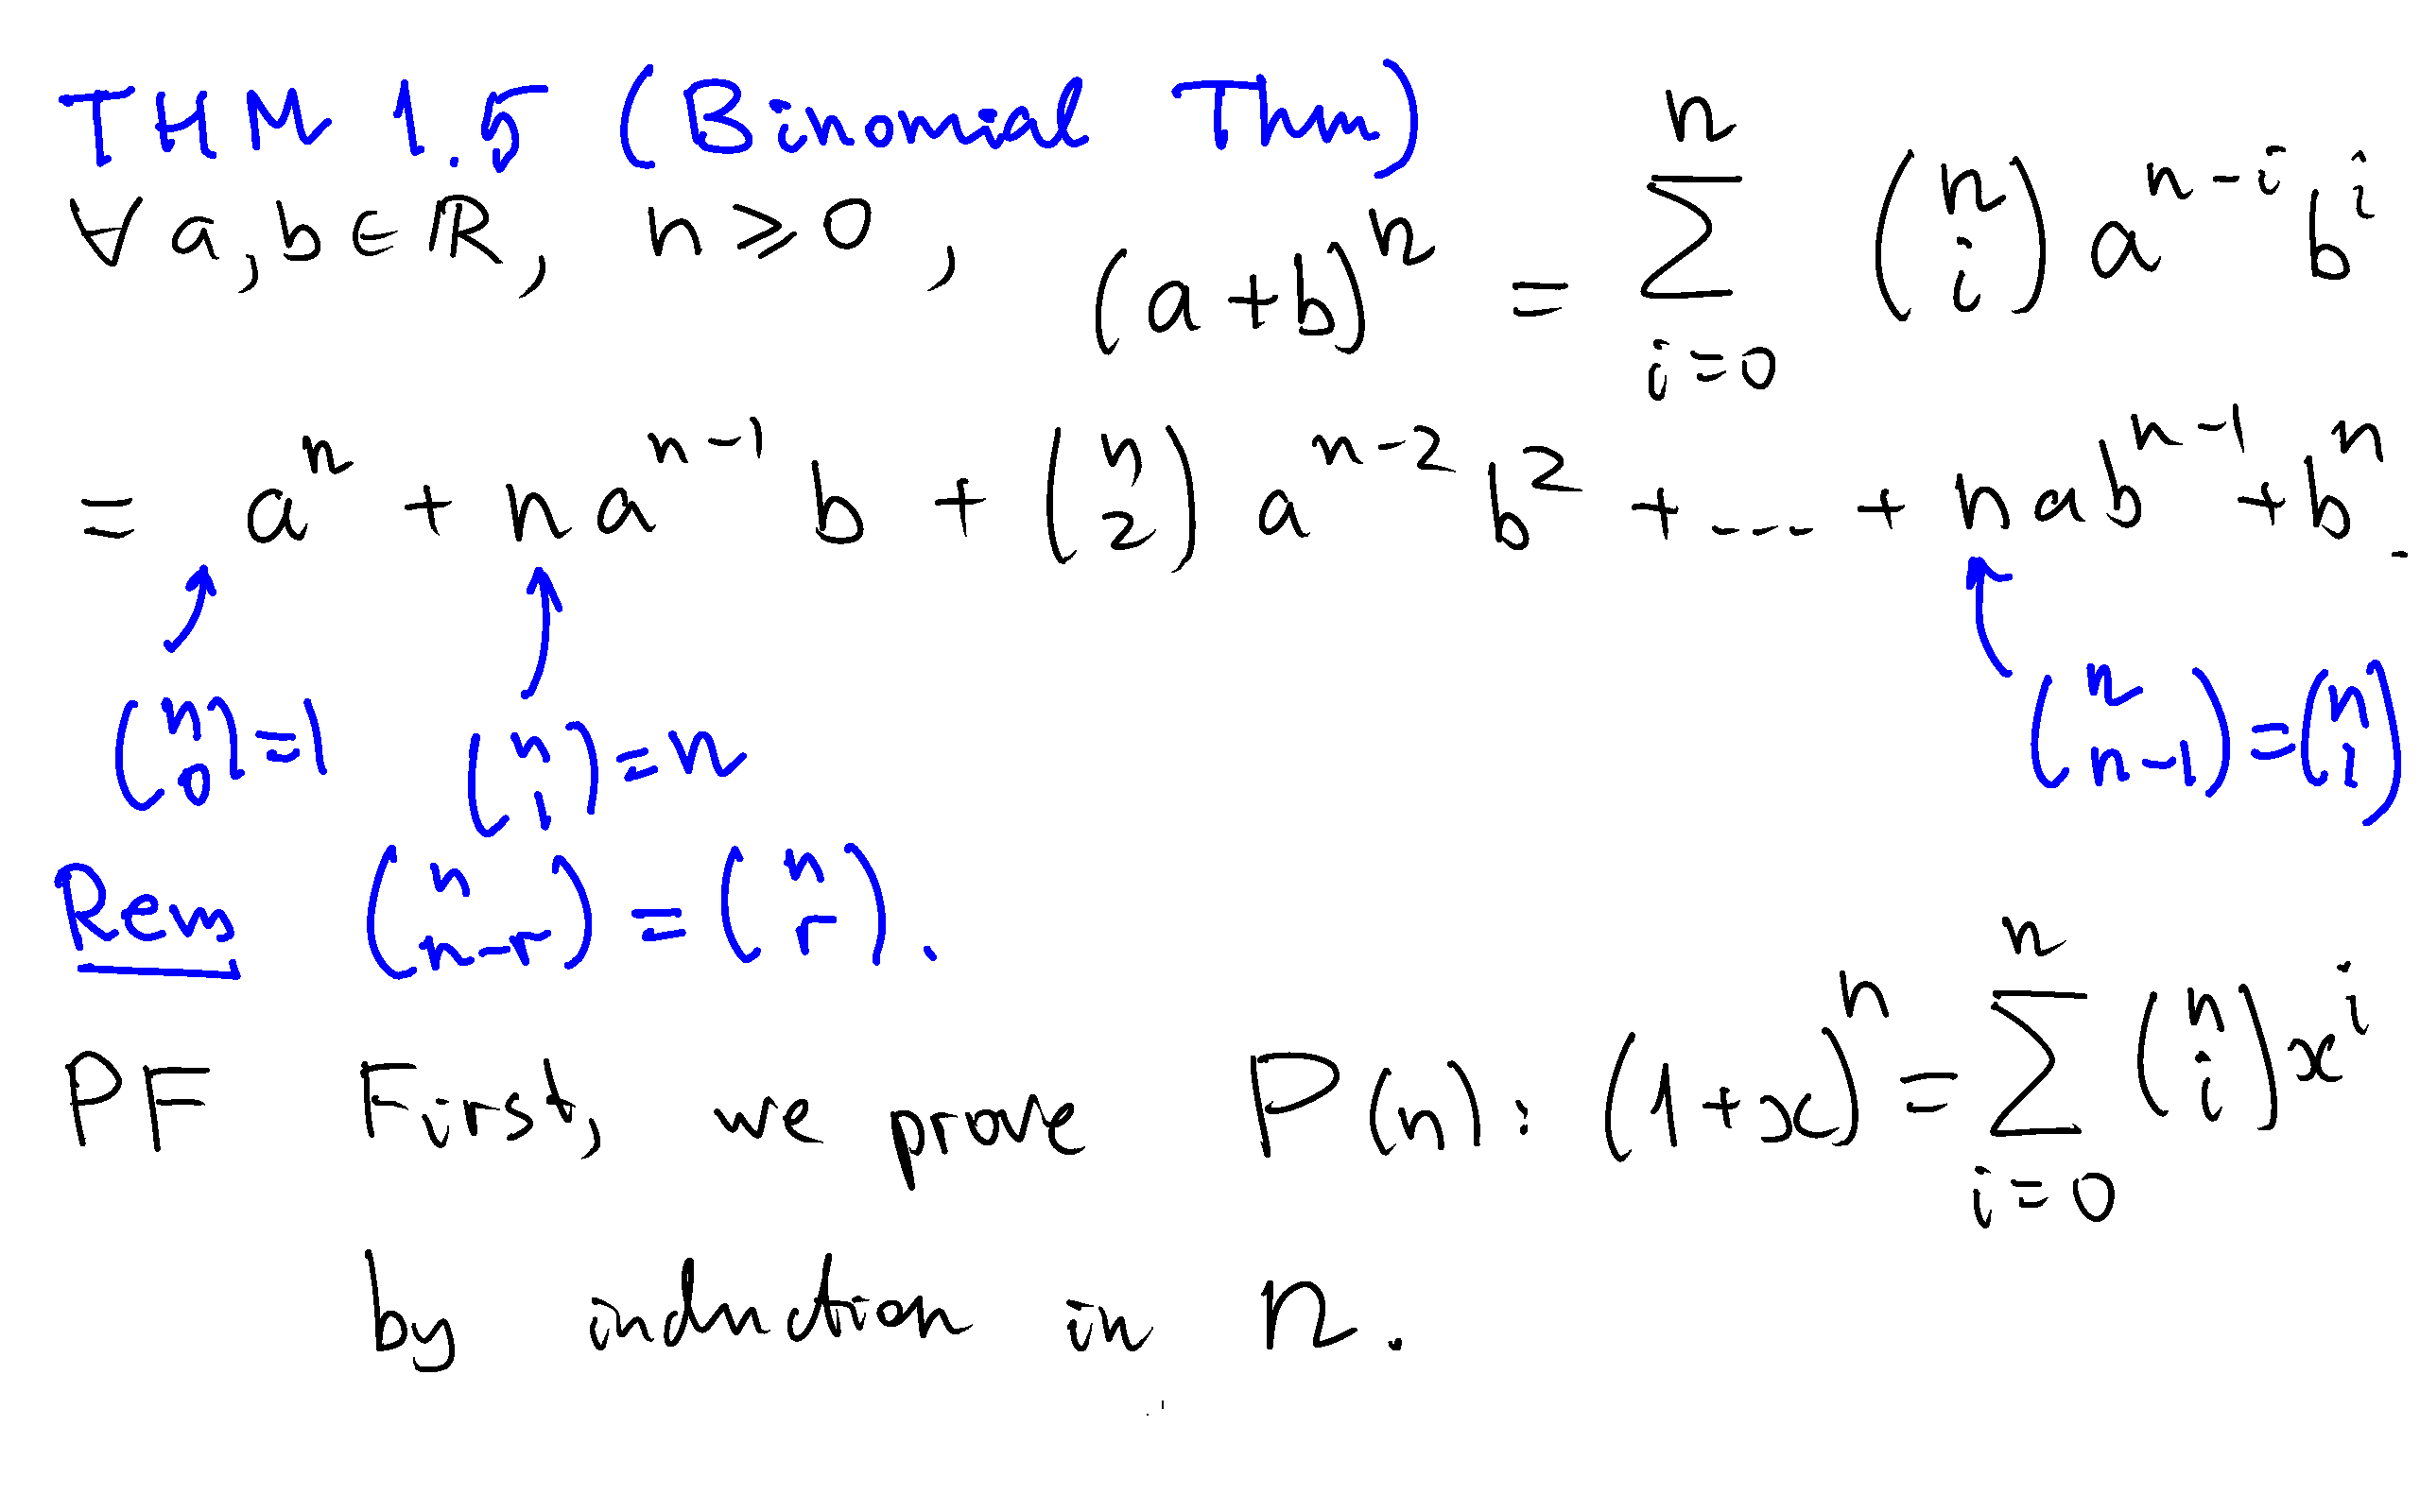 THM 1.5 (Binomial Thm)
∀ a, b ∈ ℝ, n ⩾ 0, (a+b)^n = ∑_{i=0}^{n} \binom{n}{i} a^{n-i} b^i
= a^n + n a^{n-1} b + \binom{n}{2} a^{n-2} b^2 + ... + n a b^{n-1} + b^n.
\binom{n}{0} = 1 \binom{n}{1} = n \binom{n}{n-1} = \binom{n}{1}
Rem \binom{n}{n-r} = \binom{n}{r}.
PF First, we prove P(n): (1+x)^n = ∑_{i=0}^{n} \binom{n}{i} x^i
by induction in n.